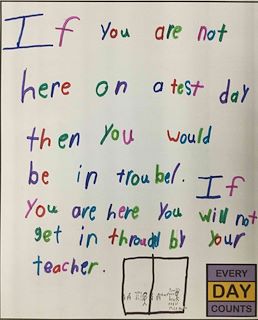 If you are not
here on a test day
then you would
be in troubel. If
you are here you will not
get in throudl by your
teacher.
EVERY
DAY
COUNTS